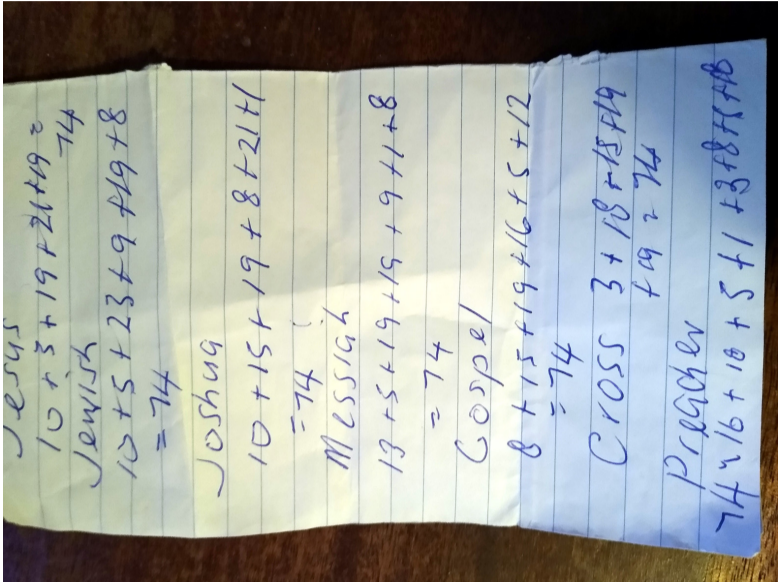 Jesus
10+5+19+21+19=
74
Jewish
10+5+23+9+19+8
=74
Joshua
10+15+19+8+21+1
=74
Messiah
13+5+19+19+9+1+8
=74
Gospel
8+15+19+16+5+12
=74
Cross 3+18+15+19
+19=74
Preacher
74=16+18+5+1+3+8+5+18